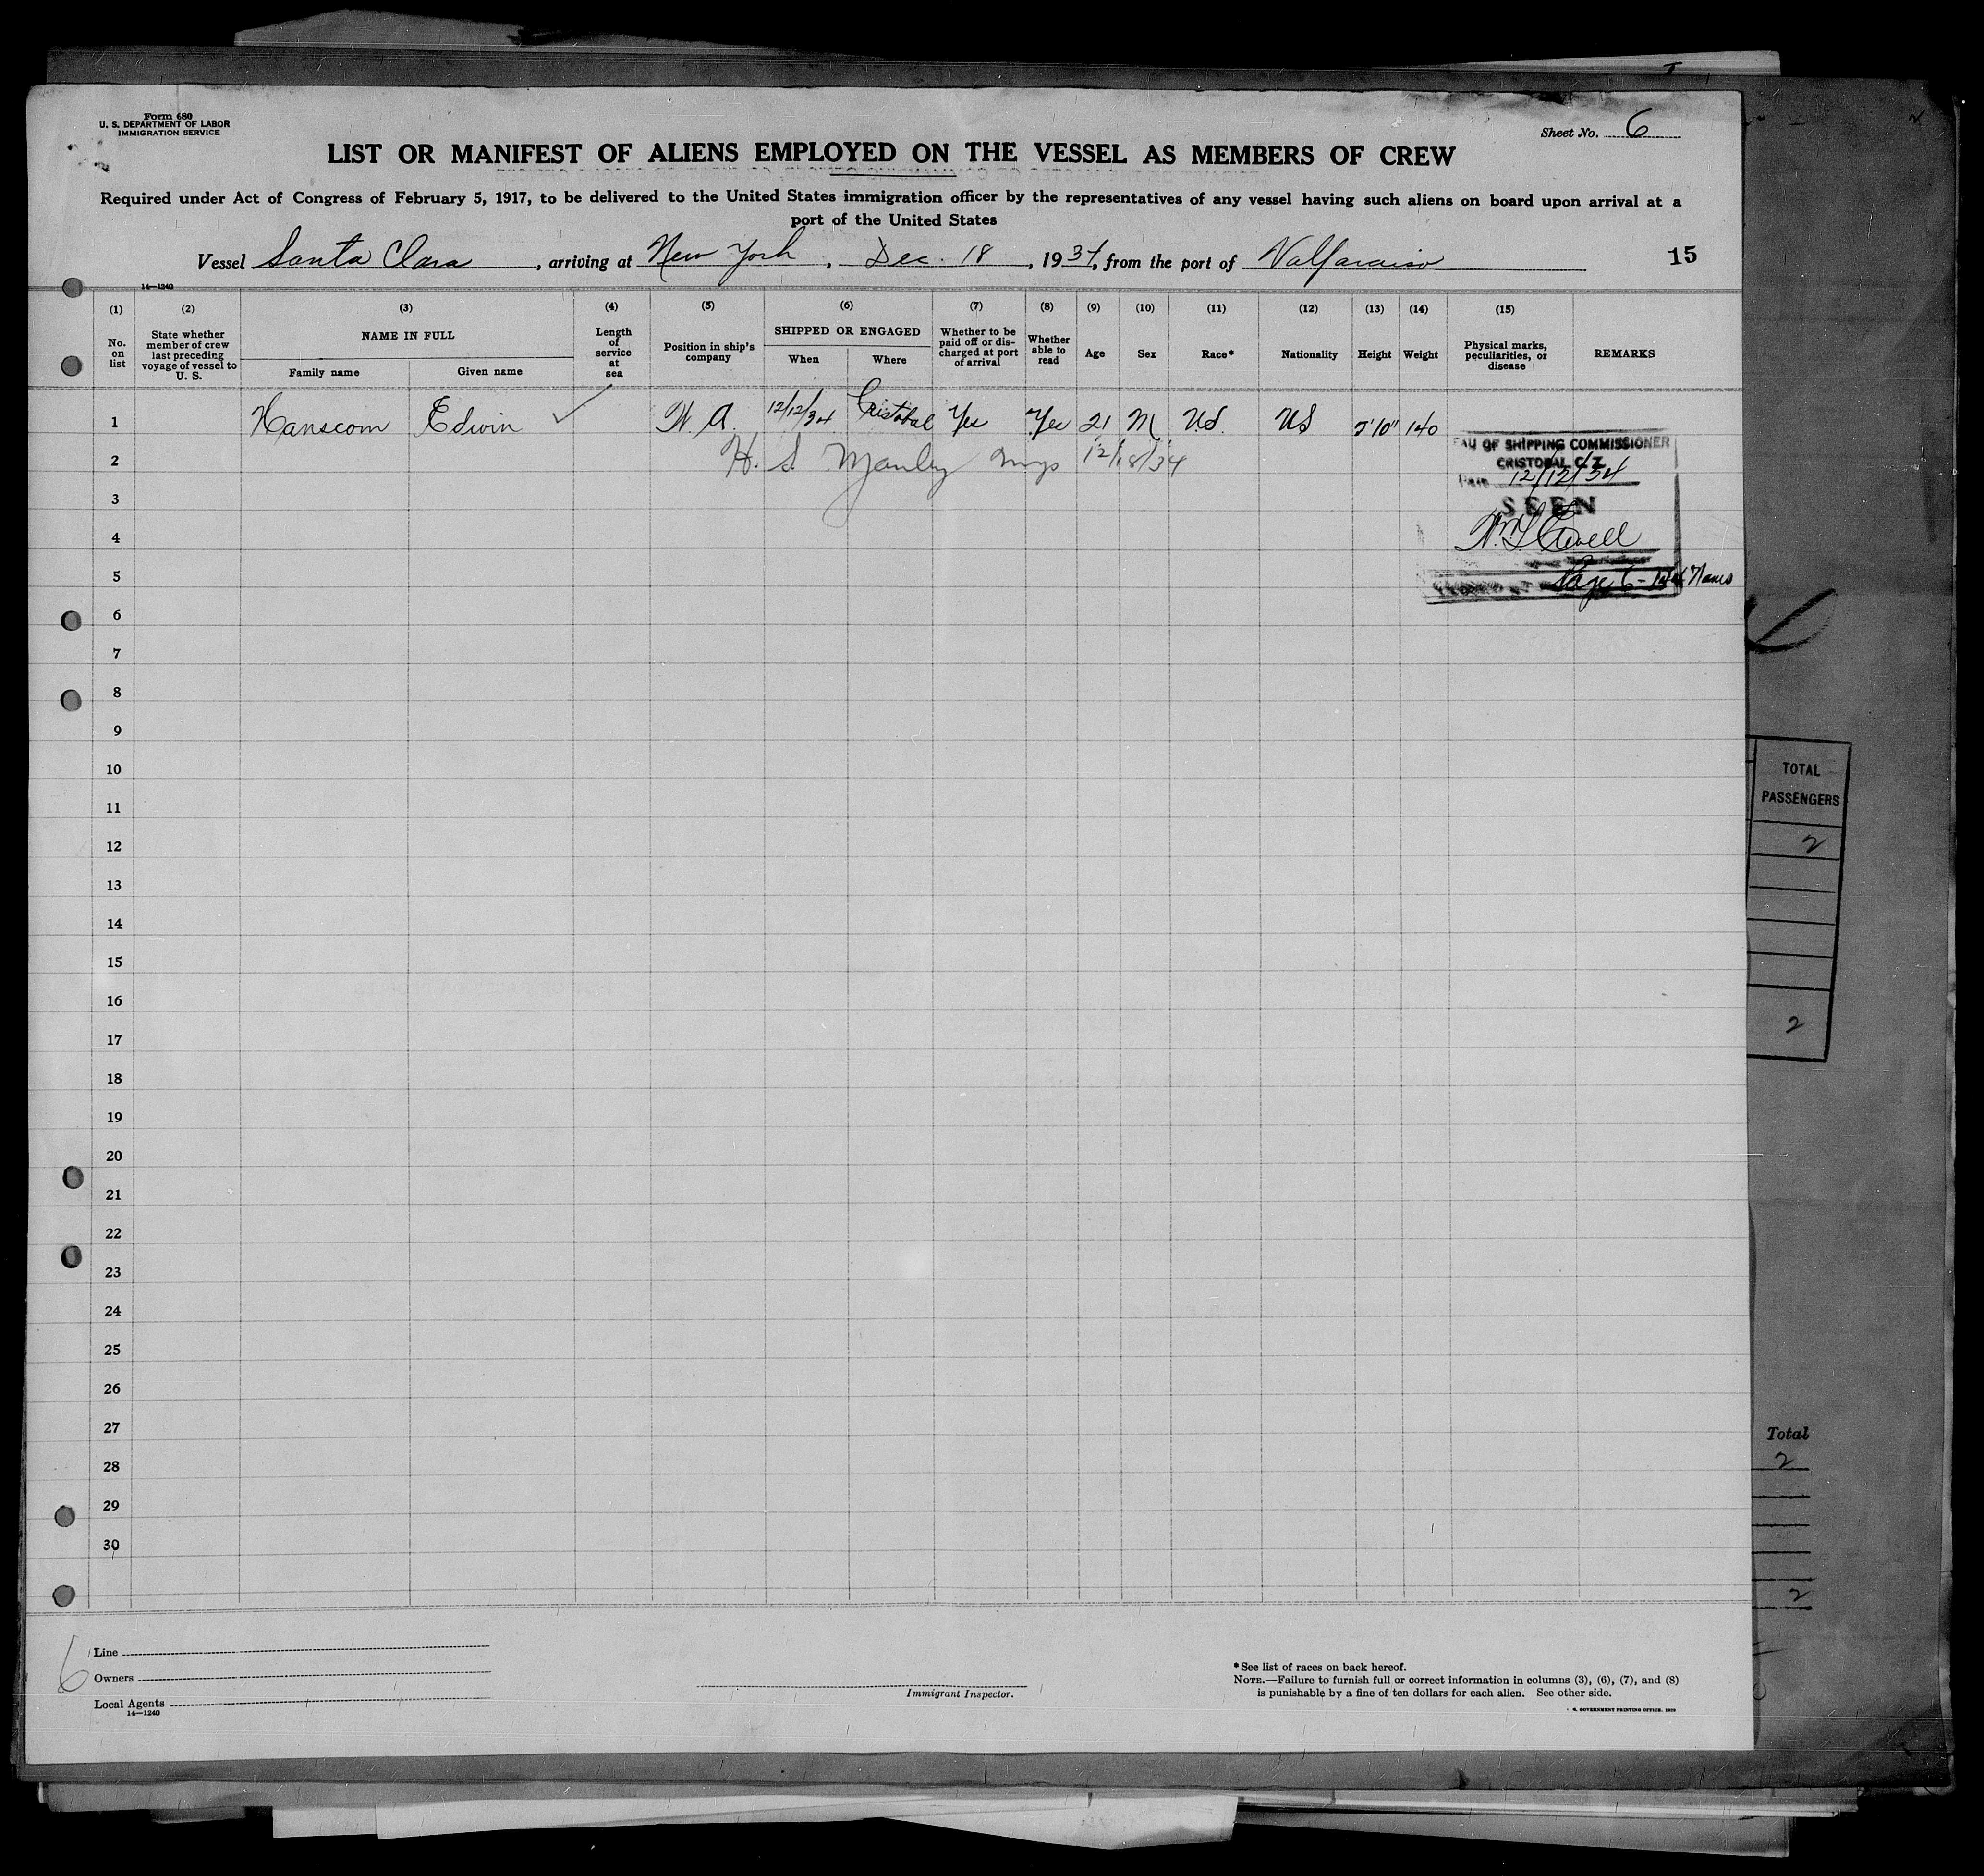 Form 680
U. S. DEPARTMENT OF LABOR
IMMIGRATION SERVICE
Sheet No. 6
LIST OR MANIFEST OF ALIENS EMPLOYED ON THE VESSEL AS MEMBERS OF CREW
Required under Act of Congress of February 5, 1917, to be delivered to the United States immigration officer by the representatives of any vessel having such aliens on board upon arrival at a
port of the United States
Vessel Santa Clara, arriving at New York, Dec. 18, 1934, from the port of Valparaiso 15
14—1240
(1) (2) (3) (4) (5) (6) (7) (8) (9) (10) (11) (12) (13) (14) (15)
No. on list
State whether member of crew last preceding voyage of vessel to U. S.
NAME IN FULL
Family name
Given name
Length of service at sea
Position in ship's company
SHIPPED OR ENGAGED
When
Where
Whether to be paid off or discharged at port of arrival
Whether able to read
Age
Sex
Race*
Nationality
Height
Weight
Physical marks, peculiarities, or disease
REMARKS
1 Hanscom Edwin W. A. 12/12/34 Cristobal Yes Yes 21 M US US 5'10" 140
2 H. S. Manley 12/18/34
EAU OF SHIPPING COMMISSIONER
CRISTOBAL C.Z.
Date 12/12/34
SEEN
Page 6
3
4
5
6
7
8
9
10
11
12
13
14
15
16
17
18
19
20
21
22
23
24
25
26
27
28
29
30
TOTAL
PASSENGERS
2
2
Total
2
2
6
Line
Owners
Local Agents
14—1240
Immigrant Inspector.
*See list of races on back hereof.
NOTE.—Failure to furnish full or correct information in columns (3), (6), (7), and (8)
is punishable by a fine of ten dollars for each alien. See other side.
S. GOVERNMENT PRINTING OFFICE. 1929